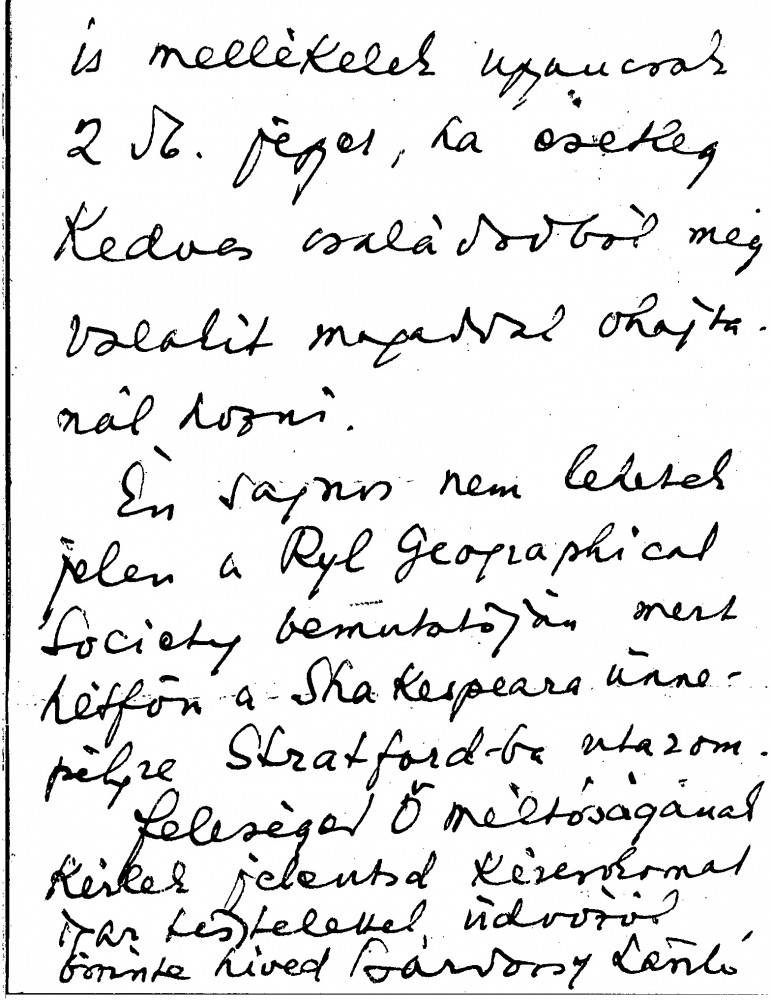 is mellékelek ugyancsak
2 db. jegyet, ha esetleg
Kedves családodból még
valakit magaddal ohajta-
nál hozni.
Én sajnos nem lehetek
jelen a Ryl Geographical
Society bemutatóján mert
hétfőn a Shakespeare ünne-
pélyre Stratford-ba utazom.
feleséged Ő méltóságának
Kérlek jelentsd Kézcsókomat
igaz tisztelettel üdvözöl
őszinte híved Bárdossy László